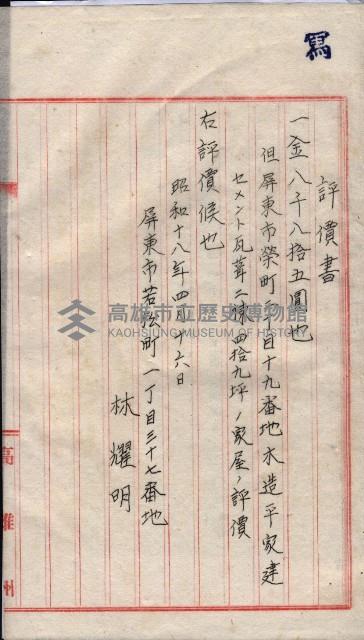 寫
評價書
一金八千八拾五圓也
但屏東市榮町二丁目十九番地木造平家建
セメント瓦葺二棟四拾九坪ノ家屋ノ評價
右評價候也
昭和十八年四月十六日
屏東市若松町一丁目三十七番地
林耀明
高雄州
高雄市立歷史博物館
KAOHSIUNG MUSEUM OF HISTORY